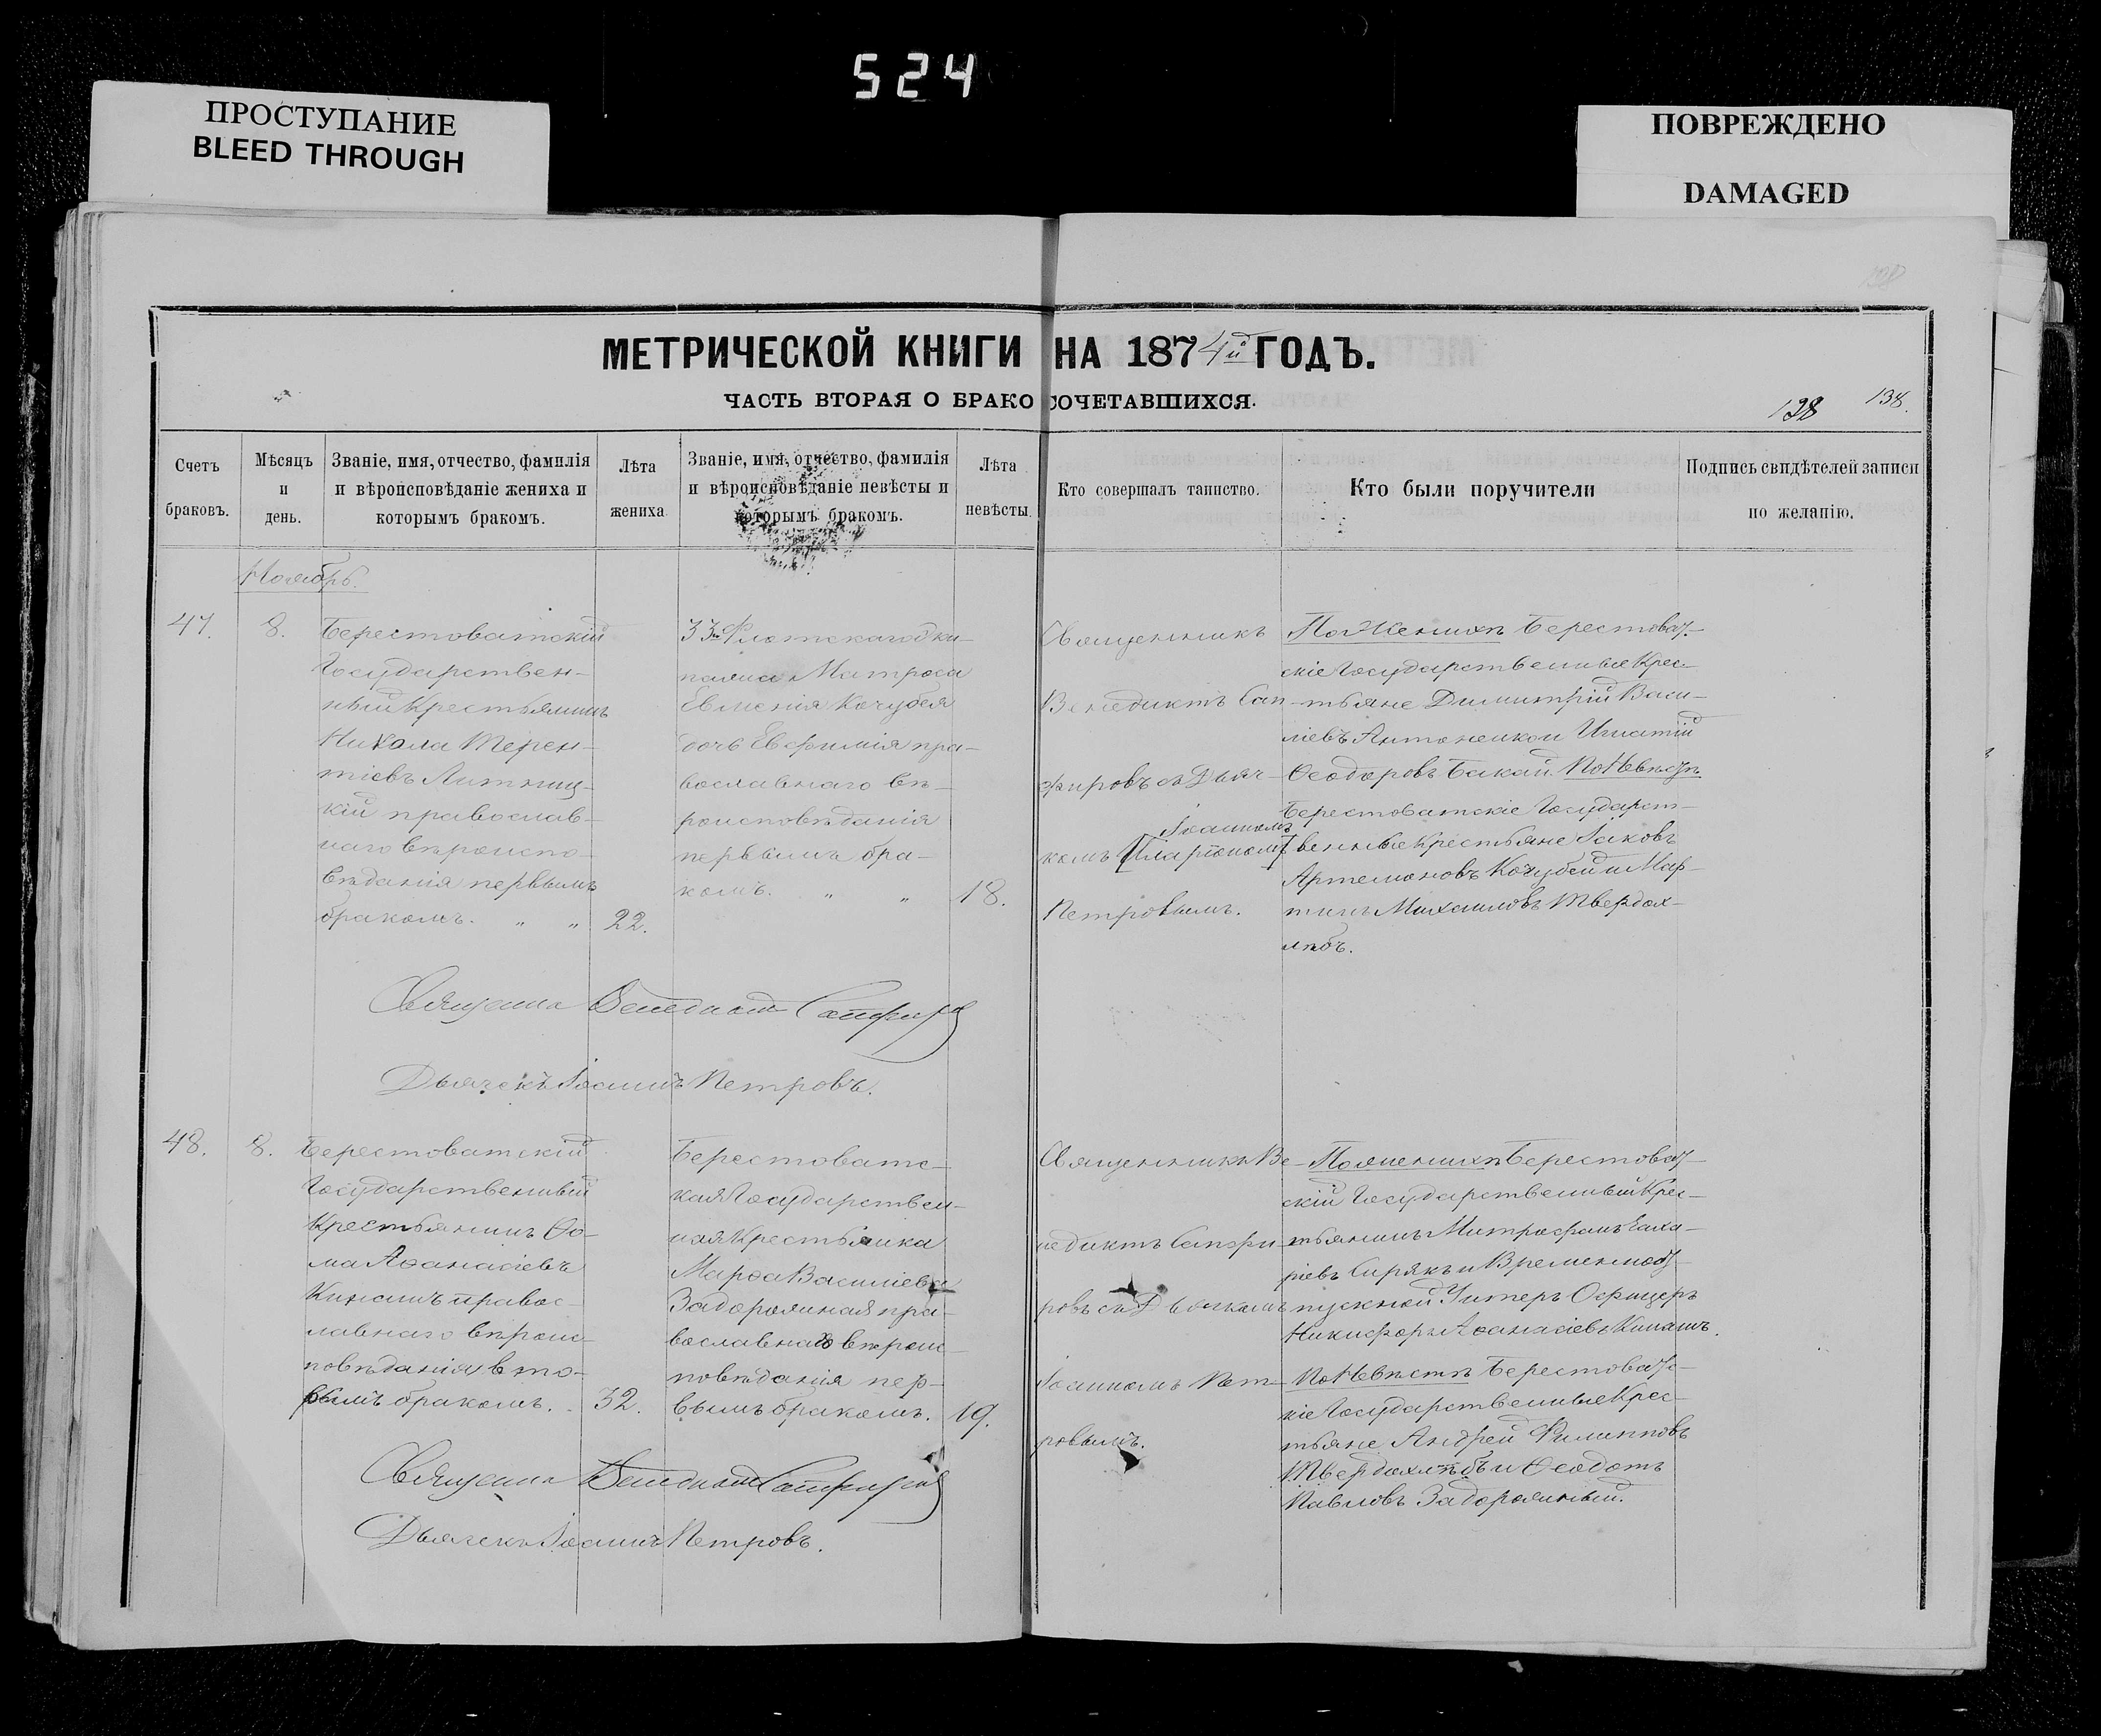 524
ПРОСТУПАНИЕ
BLEED THROUGH
ПОВРЕЖДЕНО
DAMAGED
МЕТРИЧЕСКОЙ КНИГИ НА 1874й ГОДЪ.
ЧАСТЬ ВТОРАЯ О БРАКОСОЧЕТАВШИХСЯ.
128
138.
Счетъ
браковъ.
Мѣсяцъ
и
день.
Званіе, имя, отчество, фамилія
и вѣроисповѣданіе жениха и
которымъ бракомъ.
Лѣта
жениха
Званіе, имя, отчество, фамилія
и вѣроисповѣданіе невѣсты и
которымъ бракомъ.
Лѣта
невѣсты.
Кто совершалъ таинство.
Кто были поручители
Подпись свидѣтелей записи
по желанію.
Ноябрь.
47.
8.
Берестоватскій
Государствен-
ный Крестьянинъ
Никола Терен-
тіевъ
кій православ-
наго вѣроиспо-
вѣданія первымъ
бракомъ. " "
22.
33го Флотскаго эки-
пажа Матроса
Евменія Кочубея
дочь Евфимія пра-
вославнаго вѣ-
роисповѣданія
первымъ бра-
комъ. " "
18.
Священникъ
Венедиктъ Сап-
фировъ съ Дьяч-
Іоанномъ
комъ [Иларіономъ]
Петровымъ.
По Женихѣ Берестоват-
скіе Государственные Крес-
тьяне Димитрій Васи-
ліевъ Антоненко и Игнатій
Ѳеодоровъ Бакай. По Невѣстѣ
Берестоватскіе Государст-
венные Крестьяне Іаковъ
Артемоновъ Кочубей и Мар-
тинъ Михаиловъ Твердох-
лѣбъ.
Священникъ Венедиктъ Сапфировъ
Дьячекъ Іоаннъ Петровъ.
48.
8.
Берестоватскій
Государственный
Крестьянинъ Ѳо-
ма Аѳанасіевъ
Кинашъ правос-
лавнаго вѣроис-
повѣданія вто-
рымъ бракомъ.
32.
Берестоватс-
кая Государствен-
ная Крестьянка
Марѳа Василіева
Задорожная пра-
вославнаго вѣроис-
повѣданія пер-
вымъ бракомъ.
19.
Священникъ Ве-
недиктъ Сапфи-
ровъ съ Дьячкомъ
Іоанномъ Пет-
ровымъ.
По женихѣ Берестоват-
скій Государственный Крес-
тьянинъ Митрофанъ Заха-
ріевъ Сирякъ и Временноот-
пускной Унтеръ Офицеръ
Никифоръ Аѳанасіевъ Кинашъ.
По Невѣстѣ Берестоватс-
кіе Государственные Крес-
тьяне Андрей Филипповъ
Твердохлѣбъ и Ѳеодотъ
Павловъ Задорожный.
Священникъ Венедиктъ Сапфировъ
Дьячекъ Іоаннъ Петровъ.